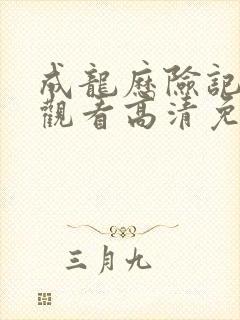 成龍歷險記
觀看高清免
三月九